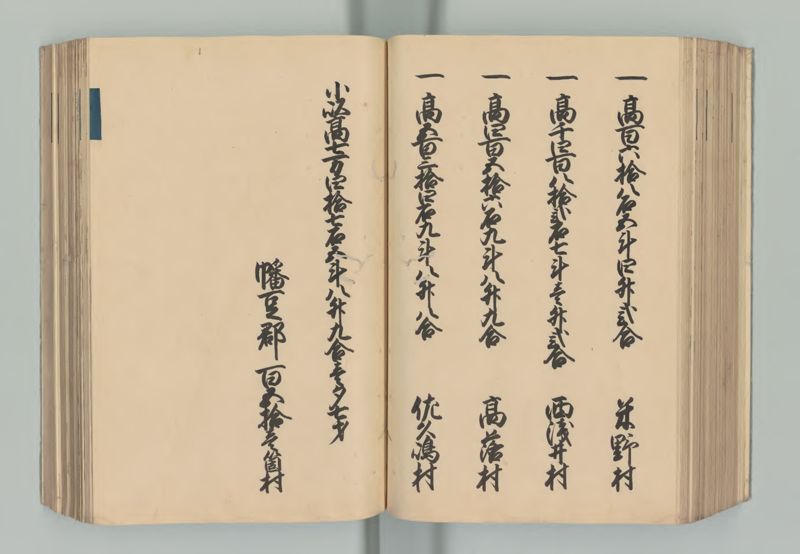 一 高百六拾八石五斗四升弐合 米野村
一 高千四百八拾弐石七斗壱升弐合 西浅井村
一 高四百五拾六石九斗八升九合 高落村
一 高五百三拾四石九斗八升八合 佐久嶋村
小以高七万四拾七石五斗八升九合壱夕七才
幡豆郡 百五拾壱箇村